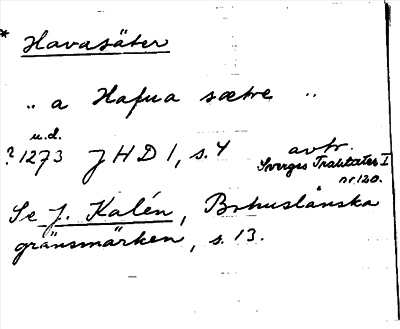 * Havasäter
„ a Hafua sætre „
u.d.
? 1273 JHD 1, s. 4 avtr.
Sverges Traktater I
nr. 120.
Se J. Kalén, Bohuslänska
gränsmärken, s. 13.